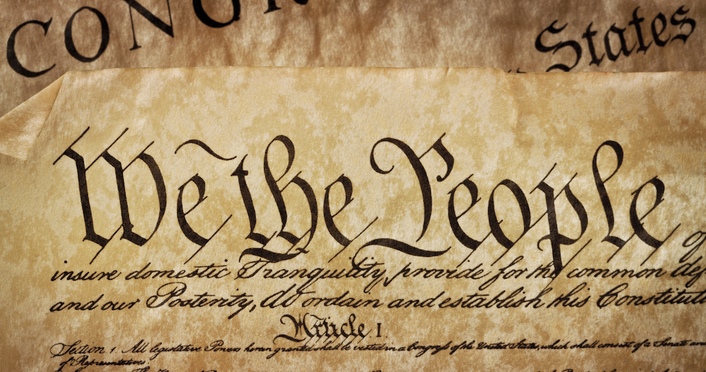 CONGR
States
We the People
insure domestic Tranquility, provide for the common def
and our Posterity, do ordain and establish this Constituti
Article I
Section 1 All legislative Powers herein granted shall be vested in a Congress of the United States, which shall consist of a Senate and
of Representatives